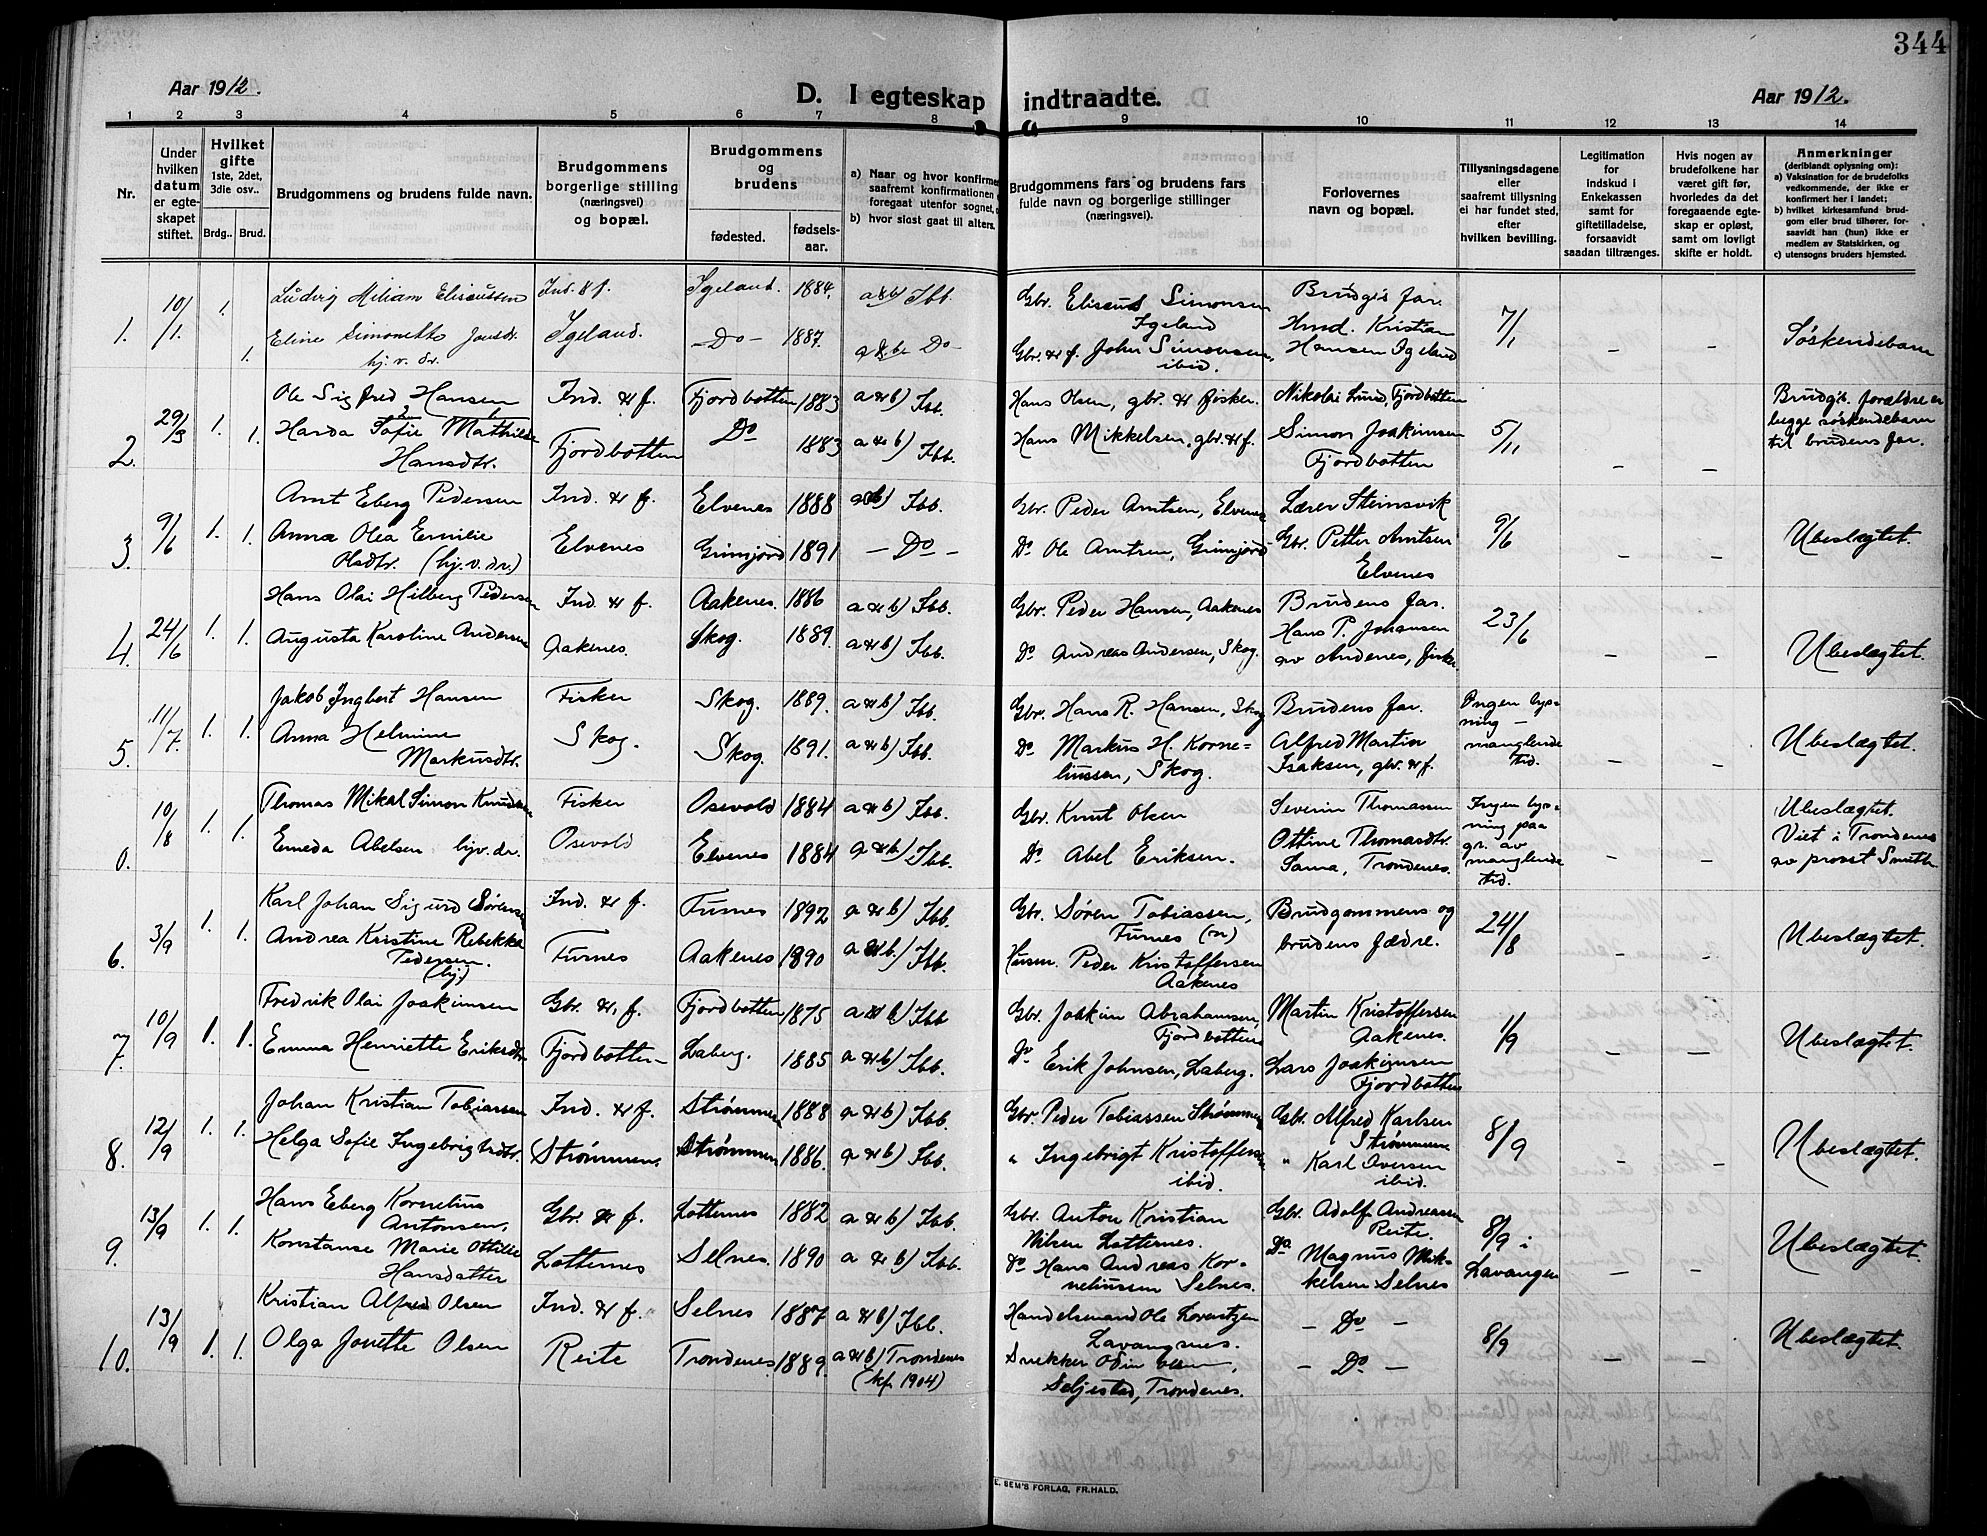 344
Aar 1912.
D. I egteskap indtraadte.
Aar 1912.
1 2 3 4 5 6 7 8 9 10 11 12 13 14
Nr.
Under hvilken datum er egteskapet stiftet.
Hvilket gifte 1ste, 2det, 3die osv..
Brdg.. Brud.
Brudgommens og brudens fulde navn.
Brudgommens borgerlige stilling (næringsvei) og bopæl.
Brudgommens og brudens
fødested. fødselsaar.
a) Naar og hvor konfirme
saafremt konfirmationen
foregaat utenfor sognet,
b) hvor sidst gaat til alters.
Brudgommens fars og brudens fars fulde navn og borgerlige stillinger (næringsvei).
Forlovernes navn og bopæl.
Tillysningsdagene eller saafremt tillysning ei har fundet sted, efter hvilken bevilling.
Legitimation for Indskud i Enkekassen samt for giftetilladelse, forsaavidt saadan tiltrænges.
Hvis nogen av brudefolkene har været gift før, hvorledes da det foregaaende egteskap er opløst, samt om lovligt skifte er holdt.
Anmerkninger (deriblandt oplysning om): a) Vaksination for de brudefolks vedkommende, der ikke er konfirmert her i landet; b) hvilket kirkesamfund brudgom eller brud tilhører, forsaavidt han (hun) ikke er medlem av Statskirken, og c) utensogns bruders hjemsted.
1. 10/1. 1. Ludvig Miliam Eliseussen Ind. & f. Igeland. 1884. a & b) Ibb. Gbr. Eliseus Simonsen Igeland Brudg's far. 7/1
1. Eline Simonette Jonsdr. hj. v. dr. Igeland. Do 1887. a & b) Do Gbr. & f. John Simonsen, ibid. Hmd. Kristian Hansen Igeland – – Søskendebarn
2. 29/3 1. Ole Sigfred Hansen Ind. & f. Fjordbotten 1883 a & b) Ibb. Hans Olsen, gbr. & fisker. Nikolai Lund, Fjordbotten 5/11 Brudg's forældre er
1. Harda Sofie Mathilde Hansdtr. Fjordbotten Do 1883 a & b) Ibb. Hans Mikkelsen, gbr. & f. Simon Joakimsen Fjordbotten – – begge søskendebarn til brudens far.
3. 9/6 1. 1. Arnt Eberg Pedersen Ind. & f. Elvenes 1888 a & b) Ibb. Gbr. Peder Arntsen, Elvenes Lærer Steinsvik 9/6
Anna Olea Emilie Olsdtr. (hj. v. dr.) Elvenes Grimjord 1891 – Do – Do Ole Arntsen, Grimjord Gbr. Petter Arntsen Elvenes – – Ubeslægtet.
4. 24/6 1. 1. Hans Olai Hilberg Pedersen Ind. & f. Aakenes. 1886 a & b) Ibb. Gbr. Peder Hansen, Aakenes Brudens far. 23/6
Augusta Karoline Andersen Aakenes. Skog. 1889. a & b) Ibb. Do Andreas Andersen, Skog. Hans P. Johansen av Andenes, fisker – – Ubeslægtet.
5. 11/7. 1. 1. Jakob Ingbert Hansen Fisker Skog. 1889. a & b) Ibb. Gbr. Hans R. Hansen, Skog Brudens far. Ingen lysning –
Anna Helmine Markusdtr. Skog. Skog. 1891. a & b) Ibb. Do Markus H. Korneliussen, Skog. Alfred Martin Isaksen, gbr. & f. manglende tid. – – Ubeslægtet.
0. 10/8 1. 1. Thomas Mikal Simon Knudsen Fisker Osevold 1884 a & b) Ibb. Gbr. Knut Olsen Severin Thomassen Ingen lysning paa Ubeslægtet.
Emeda Abelsen hjv. dr. Osevold Elvenes 1884 a & b) Ibb. Do Abel Eriksen. Ottine Thomasdtr. Sama, Trondenes. gr. av manglende tid. – – Viet i Trondenes av provst Smith
6. 3/9 1. 1. Karl Johan Sigurd Sørensen Ind. & f. Furnes 1892 a & b) Ibb. Gbr. Søren Tobiassen, Furnes Brudgommens og 24/8
Andrea Kristine Rebekka Pedersen. (hj) Furnes Aakenes 1890 a & b. Ibb. Husm. Peder Kristoffersen Aakenes brudens fædre. – – Ubeslægtet.
7. 10/9 1. 1. Fredrik Olai Joakimsen Gbr. & f. Fjordbotten 1875 a & b) Ibb Gbr. Joakim Abrahamsen, Fjordbotten Martin Kristoffersen Aakenes. 1/9
Emma Henriette Eriksdtr. Fjordbotten Laberg. 1885 a & b) Ibb. Do Erik Johnsen, Laberg. Lars Joakimsen Fjordbotten – – Ubeslægtet.
8. 12/9 1. 1. Johan Kristian Tobiassen Ind. & f. Strømmen 1888 a & b) Ibb. Gbr. Peder Tobiassen Strømmen Gbr. Alfred Karlsen Strømmen 8/9
Helga Sofie Ingebrigtsdtr. Strømmen. Strømmen 1886. a & b) Ibb. „ Ingebrigt Kristoffersen ibid. „ Karl Iversen ibid. – – Ubeslægtet.
9. 13/9 1. 1. Hans Eberg Kornelius Antonsen, Gbr. & f. Lotternes 1882 a & b) Ibb. Gbr. Anton Kristian Nilsen Lotternes. Gbr. Adolf Andreassen Reite. 8/9 i
Konstanse Marie Ottilie Hansdatter Lotternes Selnes. 1890 a & b) Ibb. Do Hans Andreas Korneliussen Selnes. Do Magnus Mikkelsen Selnes Lavangen – – Ubeslægtet.
10. 13/9 1. 1. Kristian Alfred Olsen Ind. & f. Selnes 1887 a & b) Ibb. Handelsmand Ole Lorentzen Lavangsnes. – Do – 8/9
Olga Jonette Olsen Reite Trondenes 1889. a & b) Trondenes (kf. 1904) Snekker Odin Olsen, Seljestad, Trondenes. – Do – – – Ubeslægtet.
E. SEM'S FORLAG, FR.HALD.